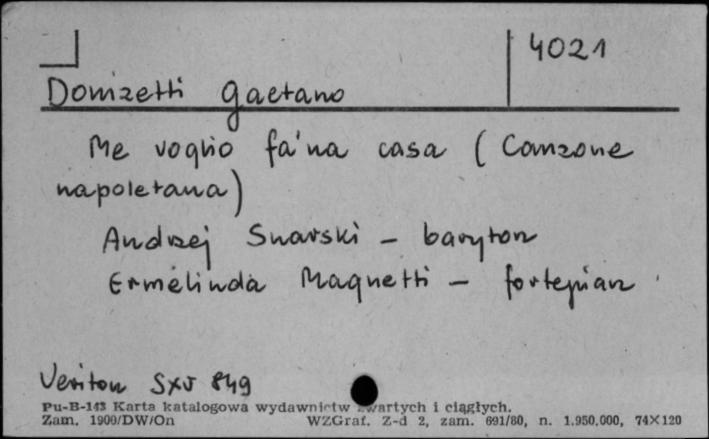 4021
Donizetti Gaetano
Me voglio fa'na casa (Canzone
napoletana)
Andrzej Snarski - baryton
Ermelinda Magnetti - fortepian
Veriton SXV 849
Pu-B-143 Karta katalogowa wydawnictw zwartych i ciągłych.
Zam. 1900/DW/On WZGraf. Z-d 2, zam. 691/80, n. 1.950.000, 74×120